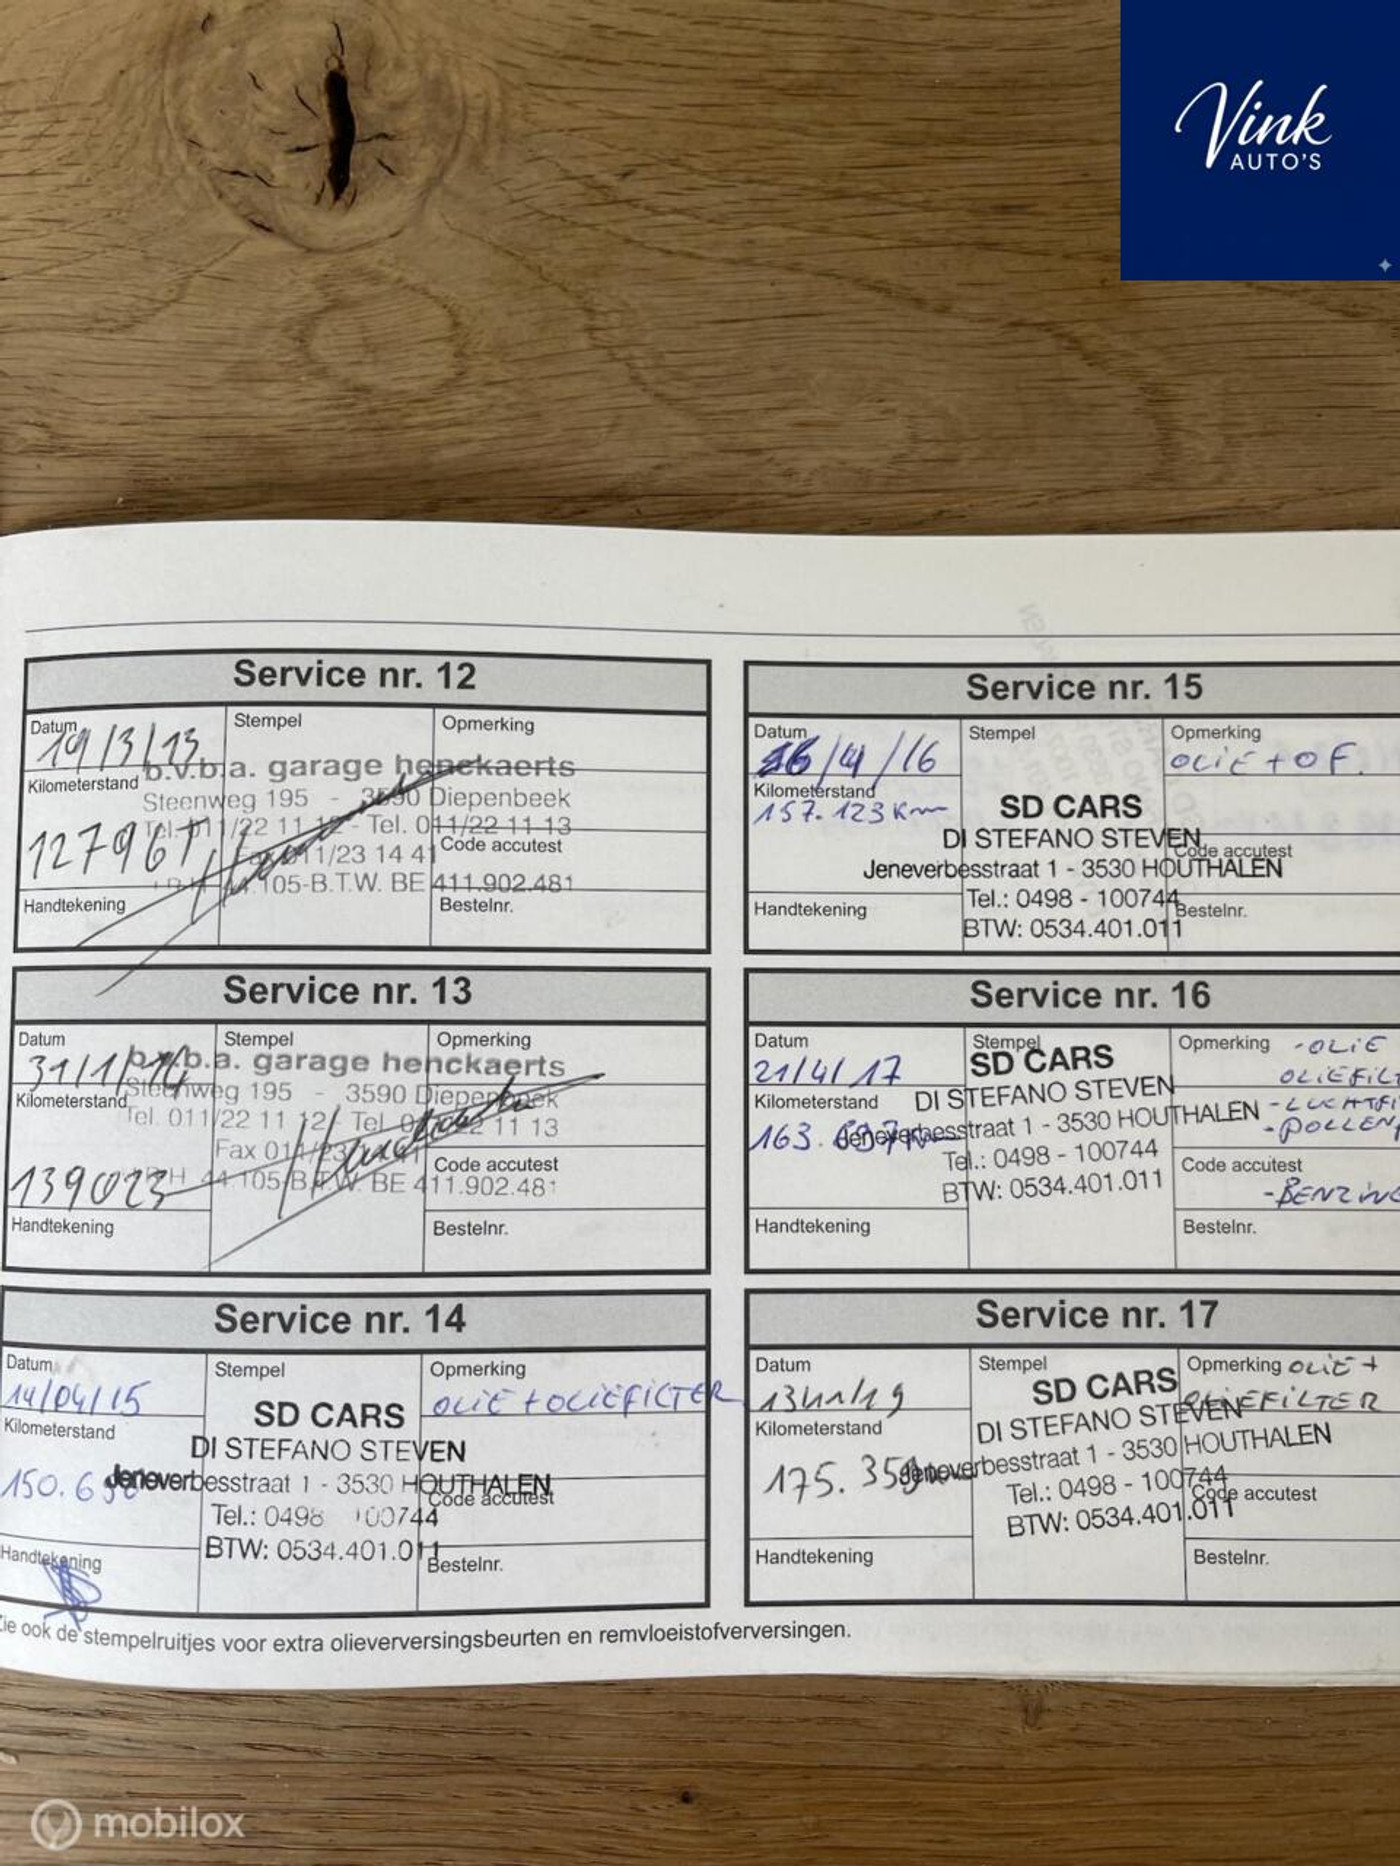 Vink
AUTO'S
Service nr. 12
Datum
19/3/13
Stempel
Opmerking
Kilometerstand
b.v.b.a. garage henckaerts
Steenweg 195 - 3590 Diepenbeek
Tel. 011/22 11 12 - Tel. 011/22 11 13
127967
Fax 011/23 14 41
Code accutest
105-B.T.W. BE 411.902.481
Handtekening
Bestelnr.
Service nr. 13
Datum
31/1/14
Stempel
Opmerking
b.v.b.a. garage henckaerts
Kilometerstand
Steenweg 195 - 3590 Diepenbeek
Tel. 011/22 11 12 Tel. 011/22 11 13
Fax 011/23
Code accutest
139023
44.105-B.T.W. BE 411.902.481
Handtekening
Bestelnr.
Service nr. 14
Datum
14/04/15
Stempel
Opmerking
OLIE + OLIEFILTER
Kilometerstand
SD CARS
DI STEFANO STEVEN
150.6
Jeneverbesstraat 1 - 3530 HOUTHALEN
Code accutest
Tel.: 0498 100744
BTW: 0534.401.011
Handtekening
Bestelnr.
Service nr. 15
Datum
/4/16
Stempel
Opmerking
OLIE + OF.
Kilometerstand
157.123 Km
SD CARS
DI STEFANO STEVEN
Code accutest
Jeneverbesstraat 1 - 3530 HOUTHALEN
Tel.: 0498 - 100744
Handtekening
Bestelnr.
BTW: 0534.401.011
Service nr. 16
Datum
21/4/17
Stempel
Opmerking
-OLIE
OLIEFILT
-LUCHTFI
-POLLEN
Kilometerstand
SD CARS
DI STEFANO STEVEN
163.
Jeneverbesstraat 1 - 3530 HOUTHALEN
Tel.: 0498 - 100744
Code accutest
BTW: 0534.401.011
-BENZINE
Handtekening
Bestelnr.
Service nr. 17
Datum
13/11/19
Stempel
Opmerking
OLIE +
OLIEFILTER
Kilometerstand
SD CARS
DI STEFANO STEVEN
175.35
Jeneverbesstraat 1 - 3530 HOUTHALEN
Tel.: 0498 - 100744
Code accutest
BTW: 0534.401.011
Handtekening
Bestelnr.
Zie ook de stempelruitjes voor extra olieverversingsbeurten en remvloeistofverversingen.
mobilox